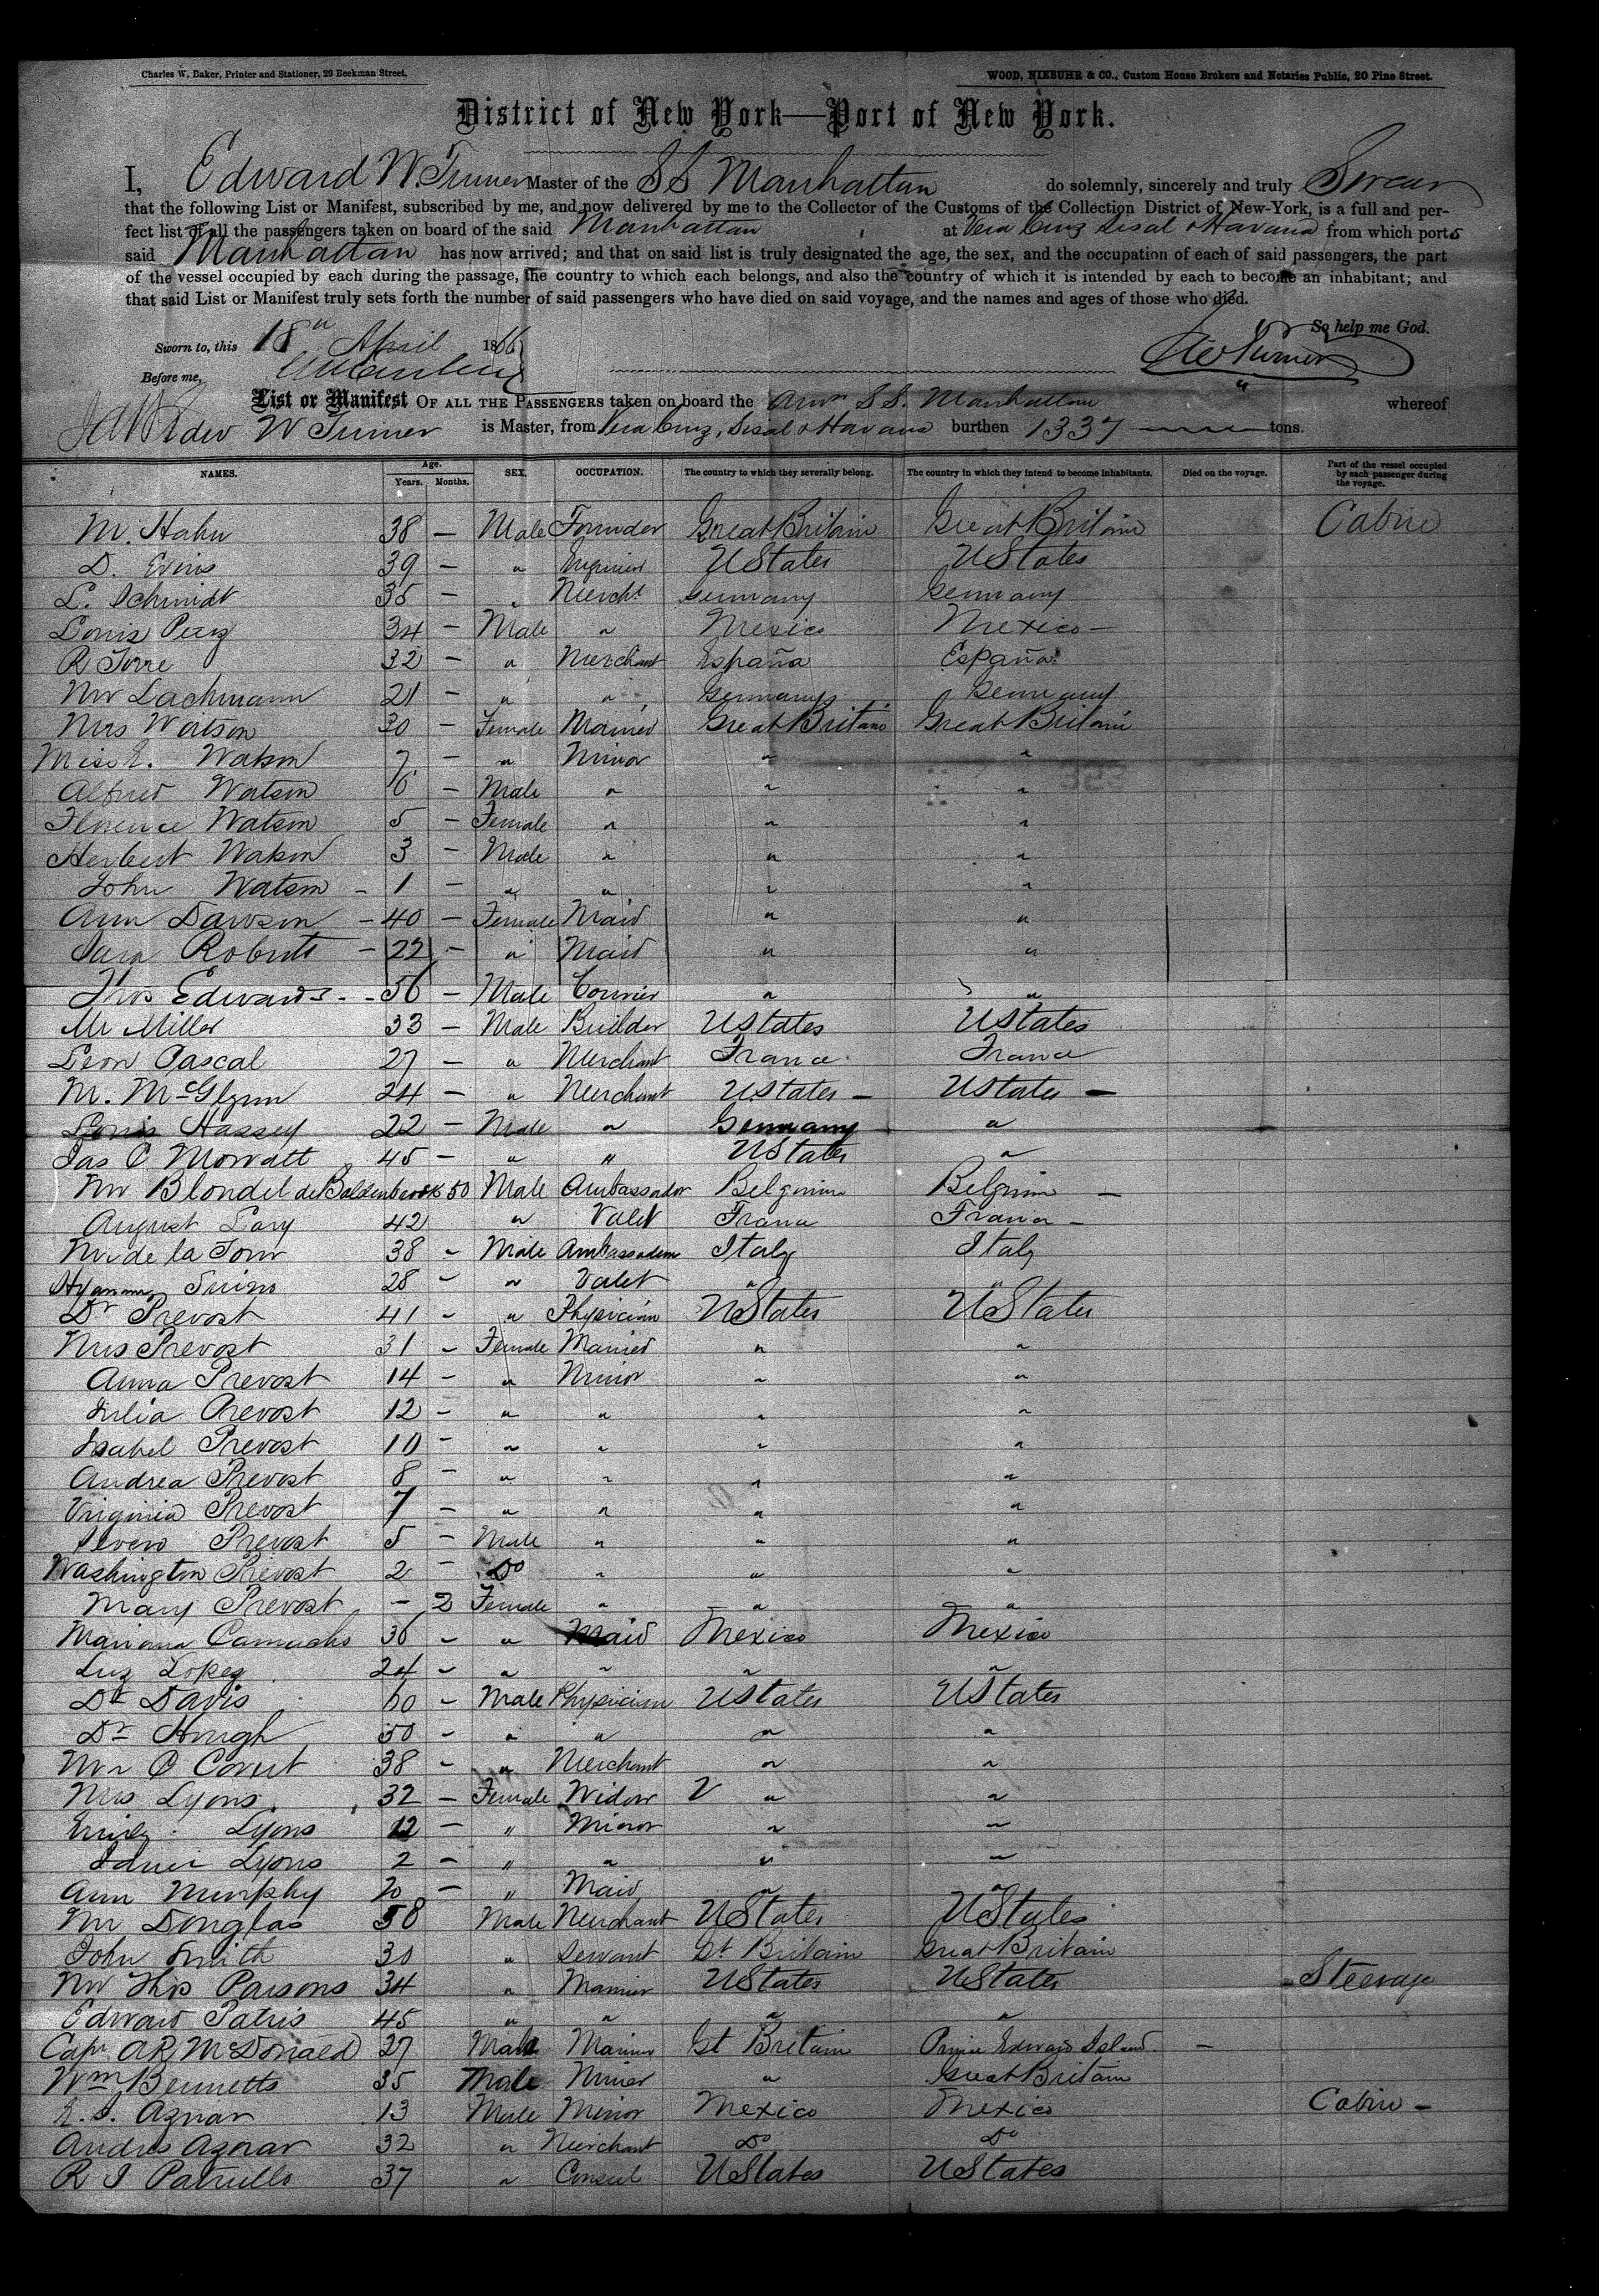 Charles W. Baker, Printer and Stationer, 29 Beekman Street.
WOOD, NIEBUHR & CO., Custom House Brokers and Notaries Public, 20 Pine Street.
District of New York—Port of New York.
I, Edward W. Turner Master of the SS Manhattan do solemnly, sincerely and truly Swear
that the following List or Manifest, subscribed by me, and now delivered by me to the Collector of the Customs of the Collection District of New-York, is a full and per-
fect list of all the passengers taken on board of the said Manhattan at Vera Cruz Sisal & Havana from which ports
said Manhattan has now arrived; and that on said list is truly designated the age, the sex, and the occupation of each of said passengers, the part
of the vessel occupied by each during the passage, the country to which each belongs, and also the country of which it is intended by each to become an inhabitant; and
that said List or Manifest truly sets forth the number of said passengers who have died on said voyage, and the names and ages of those who died.
So help me God.
Sworn to, this 18th April 1866
Before me,
List or Manifest OF ALL THE PASSENGERS taken on board the Amn SS. Manhattan whereof
Edw W Turner is Master, from Vera Cruz, Sisal & Havana burthen 1337 tons.
NAMES. Age. Years. Months. SEX. OCCUPATION. The country to which they severally belong. The country in which they intend to become inhabitants. Died on the voyage. Part of the vessel occupied by each passenger during the voyage.
M. Hahn 38 — Male Founder Great Britain Great Britain Cabin
D. Evins 39 — " Engineer UStates UStates
L. Schmidt 35 — " Mercht Germany Germany
Louis Perez 34 — Male " Mexico Mexico —
R Torre 32 — " Merchant España España
Mr Lachmann 21 — " " Germany Germany
Mrs Watson 30 — Female Married Great Britain Great Britain
Miss E. Watson 7 — " Minor " "
Alfred Watson 6 — Male " " "
Florence Watson 5 — Female " " "
Herbert Watson 3 — Male " " "
John Watson — 1 — " " " "
Ann Dawson — 40 — Female Maid " "
Sara Roberts — 22 — " Maid " "
Thos Edwards - - 56 — Male Courier " "
Mr Miller 33 — Male Builder UStates UStates
Leon Pascal 27 — " Merchant France France
M. McGlynn 24 — " Merchant UStates — UStates —
Louis Hassey 22 — Male " Germany "
Jas C Mowatt 45 — " " UStates "
Mr Blondel de Baldenbrook 50 Male Ambassador Belgium Belgium —
August Lary 42 " Valet France France —
Mr de la Tour 38 - Male Ambassador Italy Italy
28 - " Valet " "
Dr Prevost 41 - " Physician UStates UStates
Mrs Prevost 31 - Female Married " "
Anna Prevost 14 - " Minor " "
Julia Prevost 12 - " " " "
Isabel Prevost 10 - " " " "
Andrea Prevost 8 - " " " "
Virginia Prevost 7 - " " " "
Severo Prevost 5 - Male " " "
Washington Prevost 2 - Do " " "
Mary Prevost - 2 Female " " "
Mariana Camacho 36 - " Maid Mexico Mexico
Luz Lopez 24 - " " " "
Dr Davis 60 - Male Physician UStates UStates
Dr Hough 50 - " " " "
Mr C Covert 38 - " Merchant " "
Mrs Lyons 32 — Female Widow " "
Emily Lyons 12 — " Minor " "
Lyons 2 — " " " "
Ann Murphy 20 — " Maid " "
Mr Douglas 58 Male Merchant UStates UStates
John Smith 30 " Servant Gt Britain Great Britain
Mr Thos Parsons 34 " Mariner UStates UStates Steerage
Edward Patris 45 " " " "
Capn AR McDonald 27 Male Mariner Gt Britain Prince Edward Island —
Wm Bennetts 35 Male Miner " Great Britain
E. S. Aznar 13 Male Minor Mexico Mexico Cabin —
Andres Aznar 32 " Merchant Do Do
R J Patrullo 37 " Consul UStates UStates